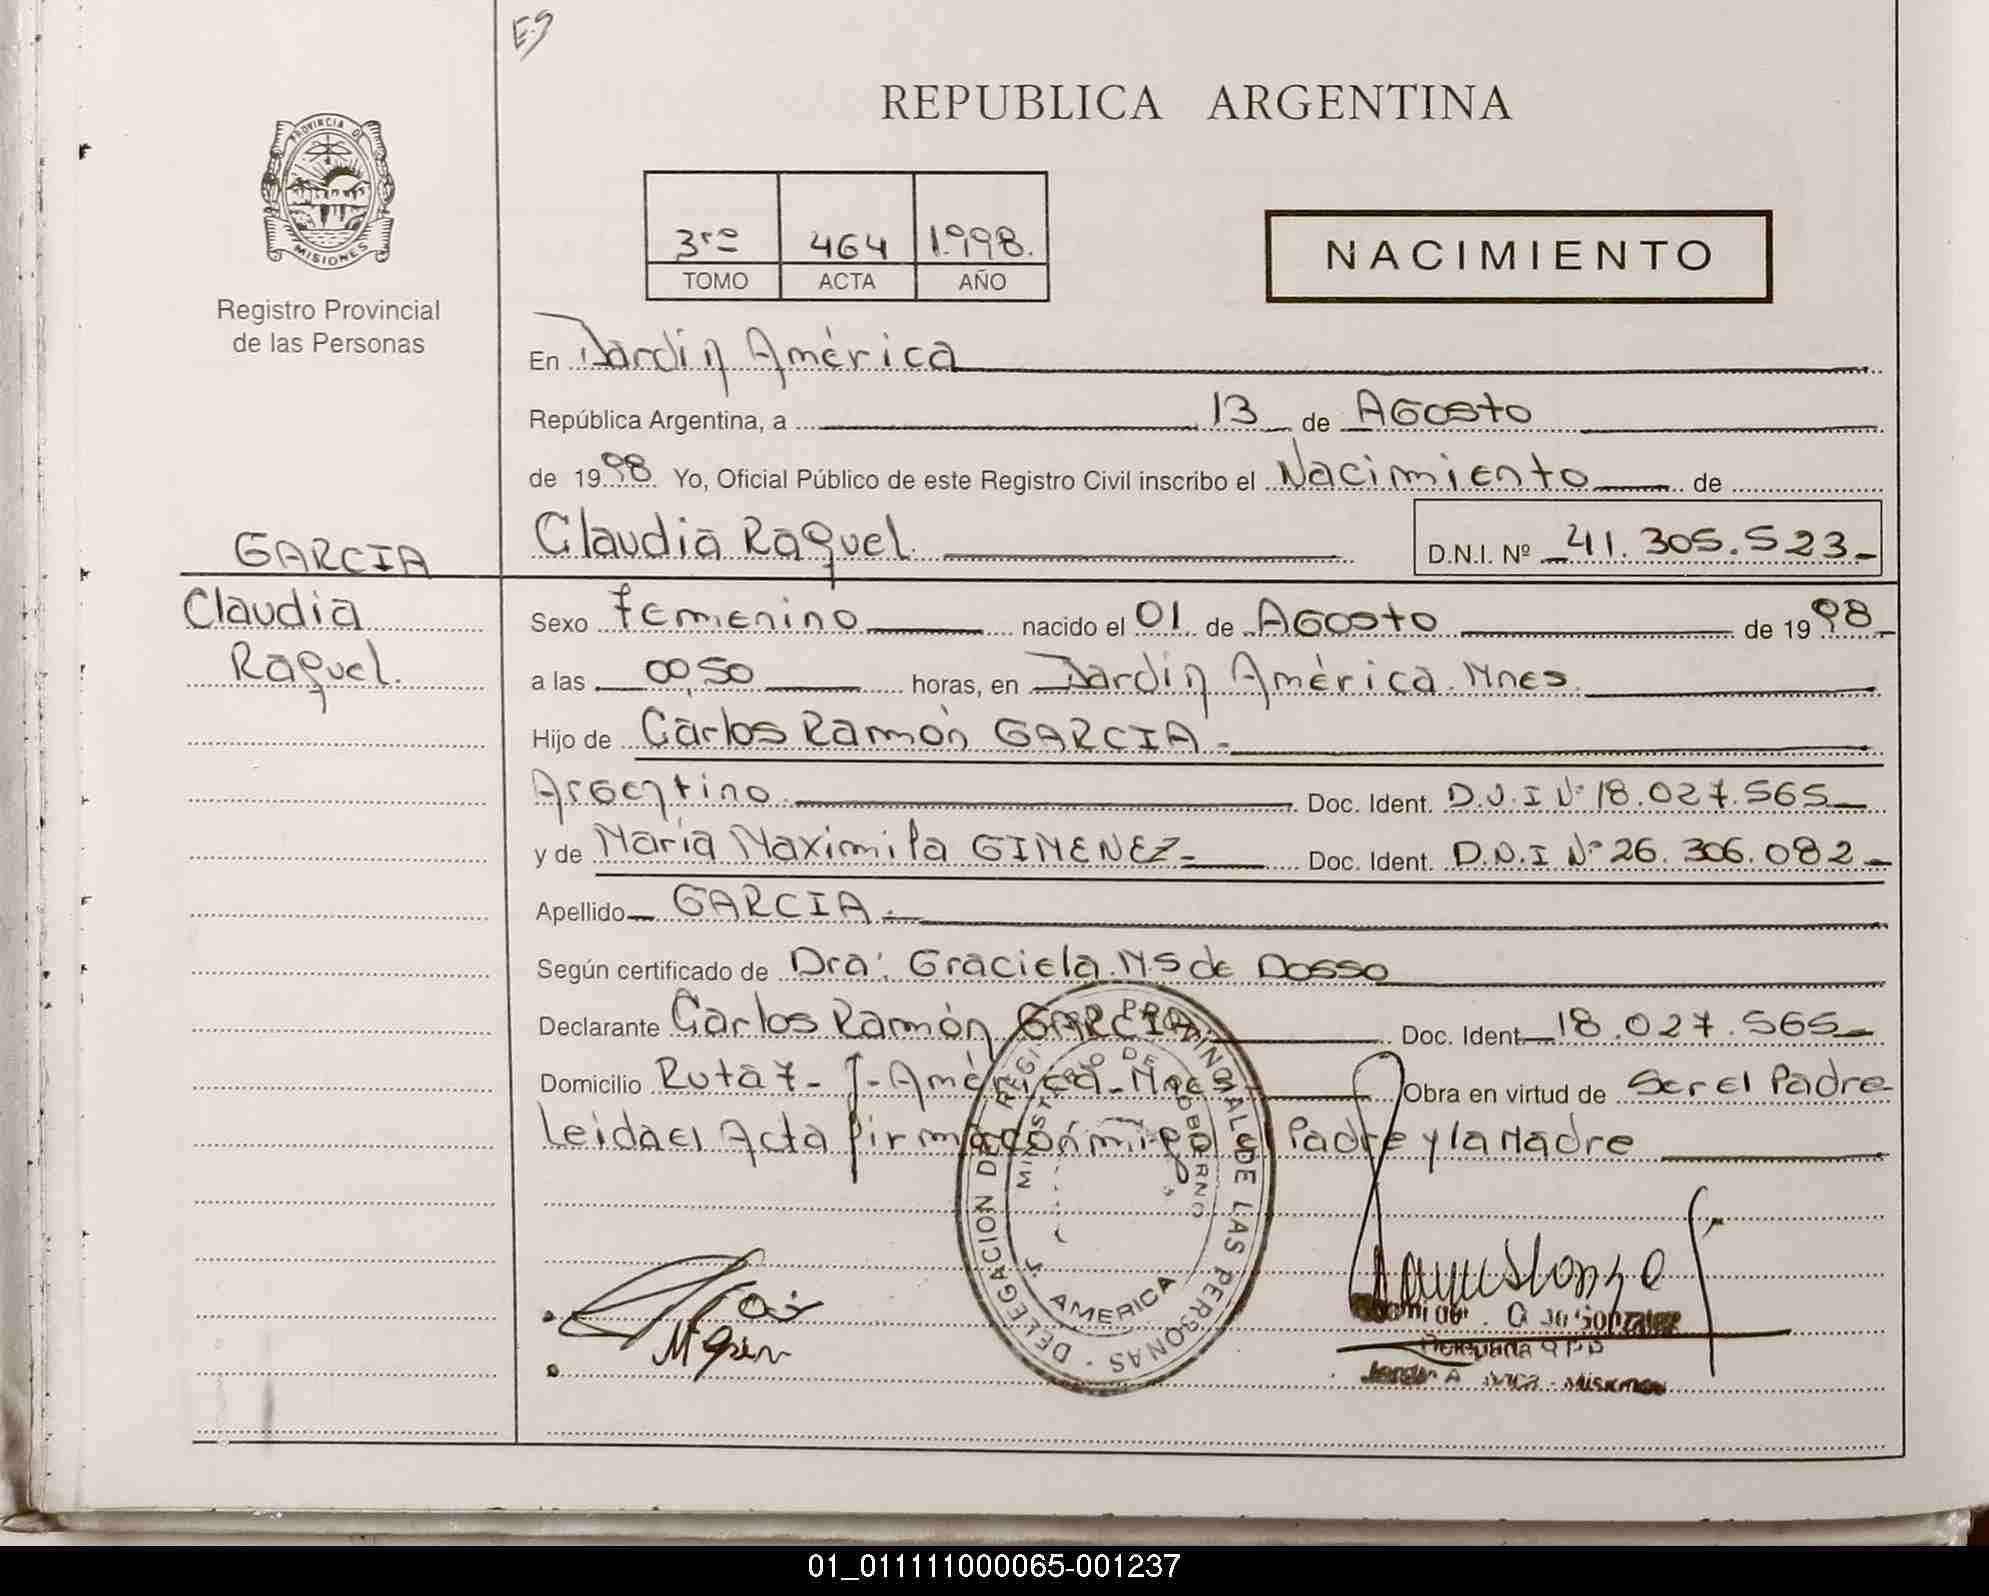 ES
REPUBLICA ARGENTINA
PROVINCIA DE
MISIONES
Registro Provincial
de las Personas
3ro 464 1.998.
TOMO ACTA AÑO
NACIMIENTO
En Jardín América
República Argentina, a 13 de AGosto
de 1998 Yo, Oficial Público de este Registro Civil inscribo el Nacimiento de
GARCIA
Claudia Raquel. D.N.I. Nº 41.305.523
Claudia
Raquel.
Sexo Femenino nacido el 01 de AGosto de 1998
a las 00,50 horas, en Jardín América. Mnes.
Hijo de Carlos Ramón GARCIA
Argentino. Doc. Ident. D.N.I Nº 18.027.565
y de María Maximila GIMENEZ Doc. Ident. D.N.I Nº 26.306.082
Apellido GARCIA.
Según certificado de Dra: Graciela M.S de Dosso
Declarante Carlos Ramón GARCIA Doc. Ident 18.027.565
Domicilio Ruta 7 - J - América - Mnes Obra en virtud de Ser el Padre
Leida el Acta firma conmigo el Padre y la Madre
DELEGACION DE REGI PROVINCIAL DE LAS PERSONAS
MINISTERIO DE GOBIERNO
J. AMERICA
Gonzalez
01_011111000065-001237